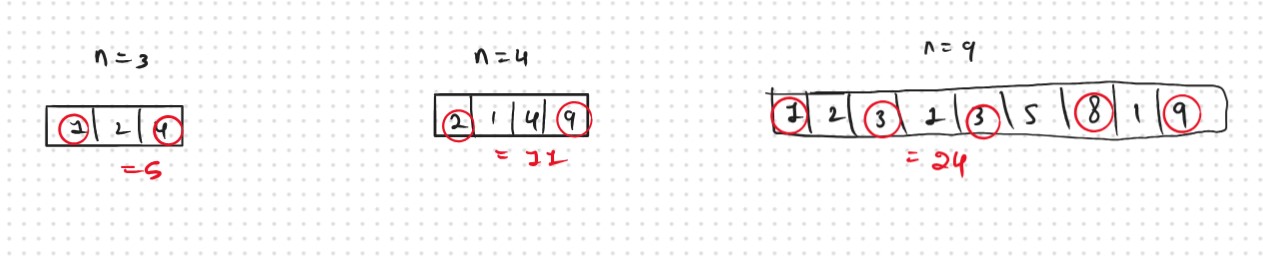 n=3
1 2 4
=5
n=4
2 1 4 9
=11
n=9
1 2 3 1 3 5 8 1 9
=24